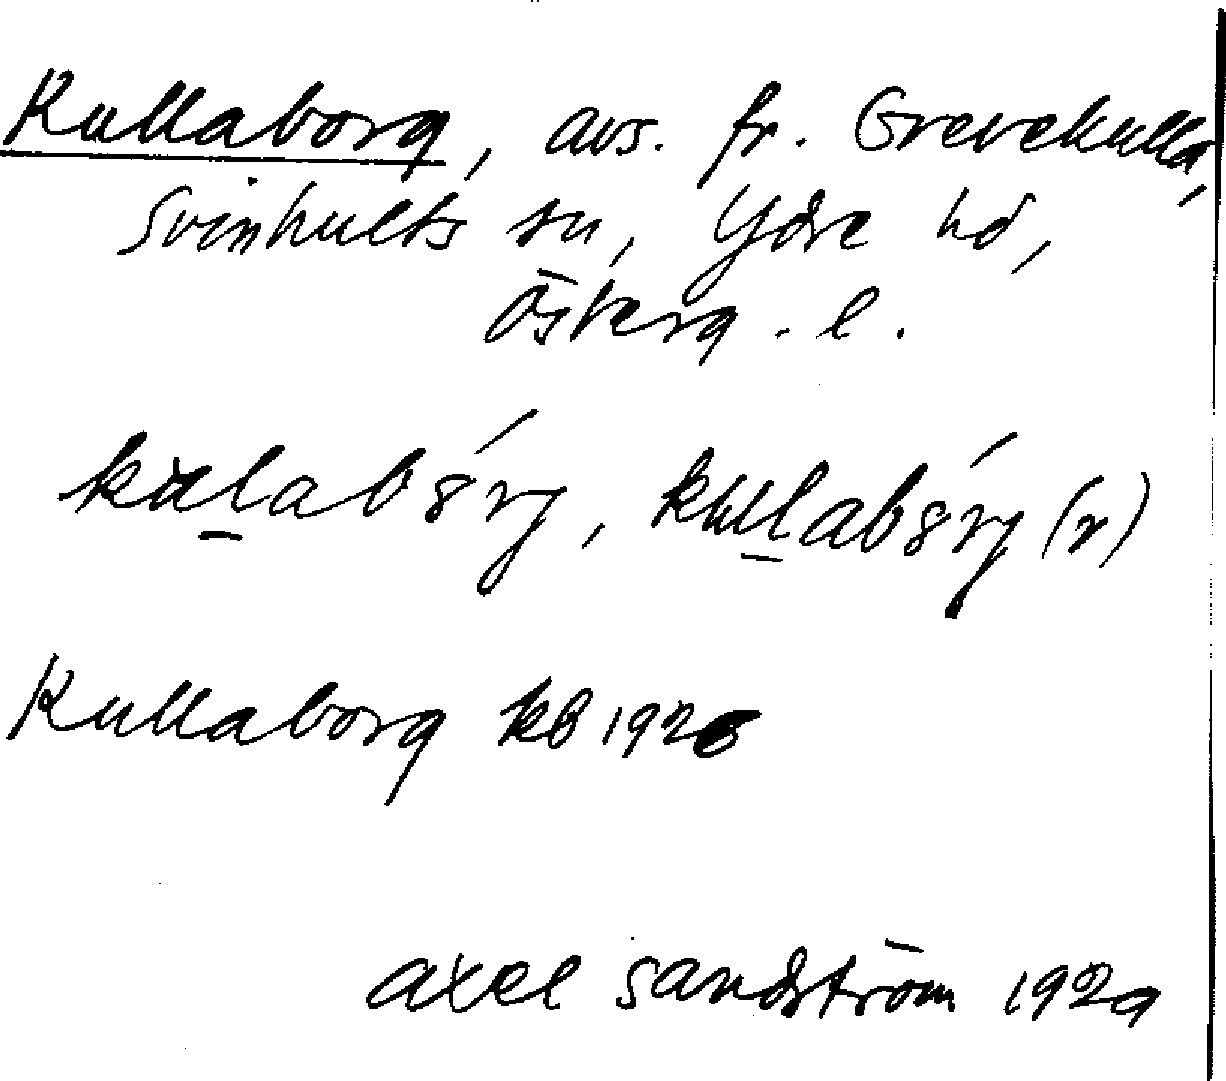 Kullaborg, avs. fr. Grevekulla,
Svinhults sn, Ydre hd,
Österg. l.
Kullaborg kb 1928
Axel Sandström 1929